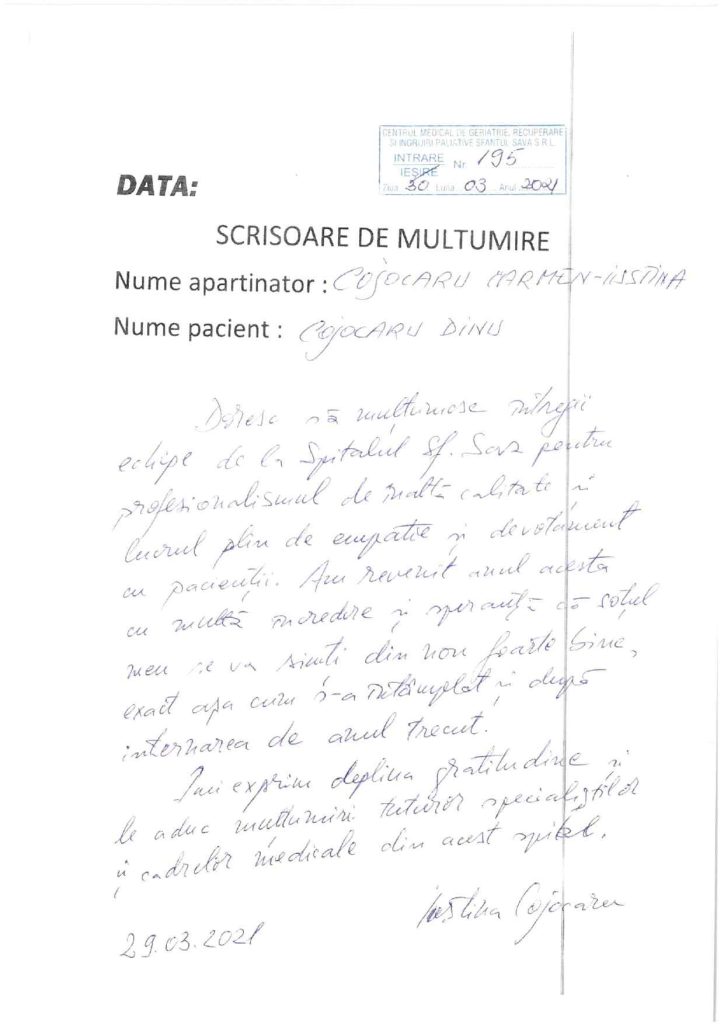 CENTRUL MEDICAL DE GERIATRIE, RECUPERARE
SI INGRIJIRI PALIATIVE SFANTUL SAVA S.R.L.
INTRARE
IEȘIRE
Nr. 195
Ziua 30 Luna 03 Anul 2021
DATA:
SCRISOARE DE MULTUMIRE
Nume apartinator : COJOCARU CARMEN-IUSTINA
Nume pacient : COJOCARU DINU
Doresc să mulțumesc întregii
echipe de la Spitalul Sf. Sava pentru
profesionalismul de înaltă calitate și
lucrul plin de empatie și devotament
cu pacienții. Am revenit anul acesta
cu multă încredere și speranță că soțul
meu se va simți din nou foarte bine,
exact așa cum s-a întâmplat și după
internarea de anul trecut.
Îmi exprim deplina gratitudine și
le aduc mulțumiri tuturor specialiștilor
și cadrelor medicale din acest spital.
Iustina Cojocaru
29.03.2021